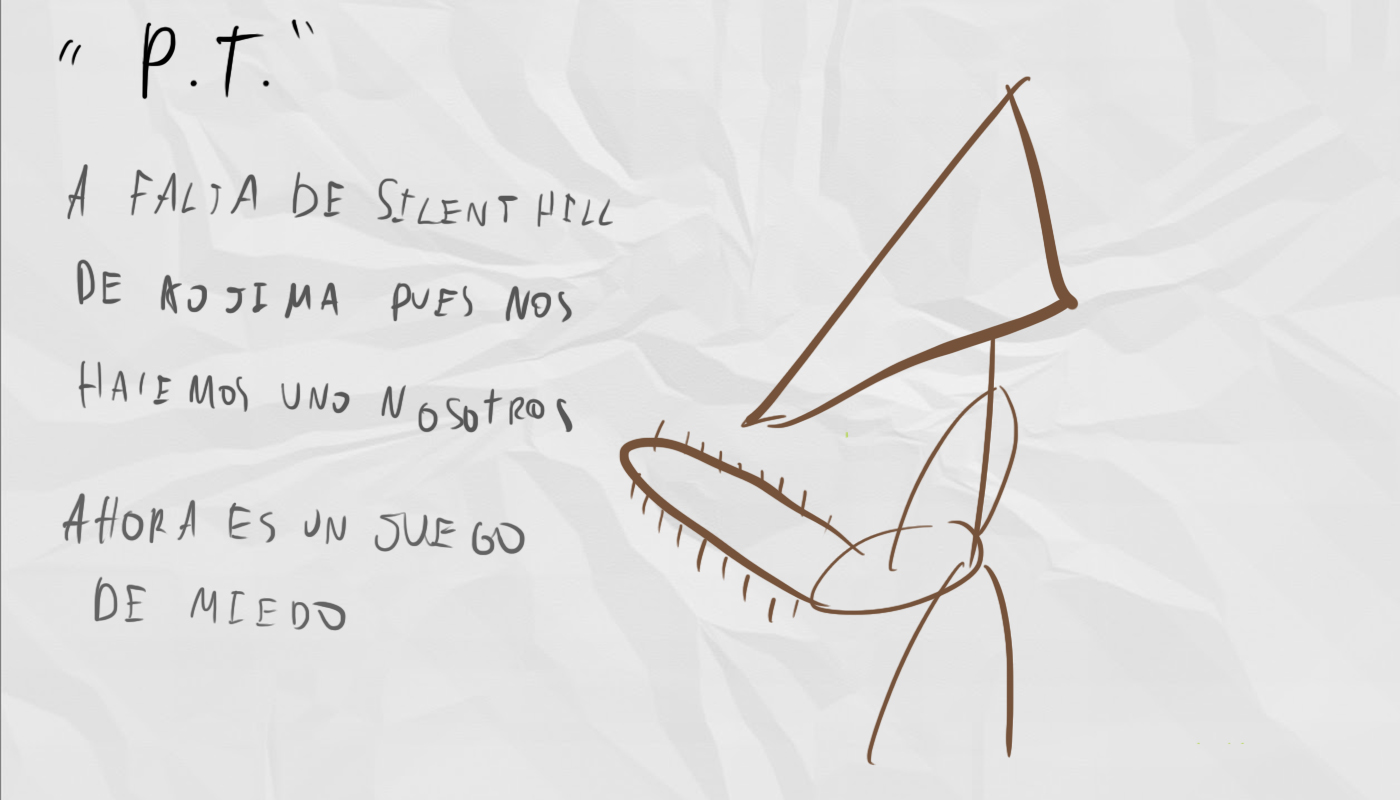 " P.T. "
A FALTA DE SILENT HILL
DE KOJIMA PUES NOS
HACEMOS UNO NOSOTROS
AHORA ES UN JUEGO
DE MIEDO